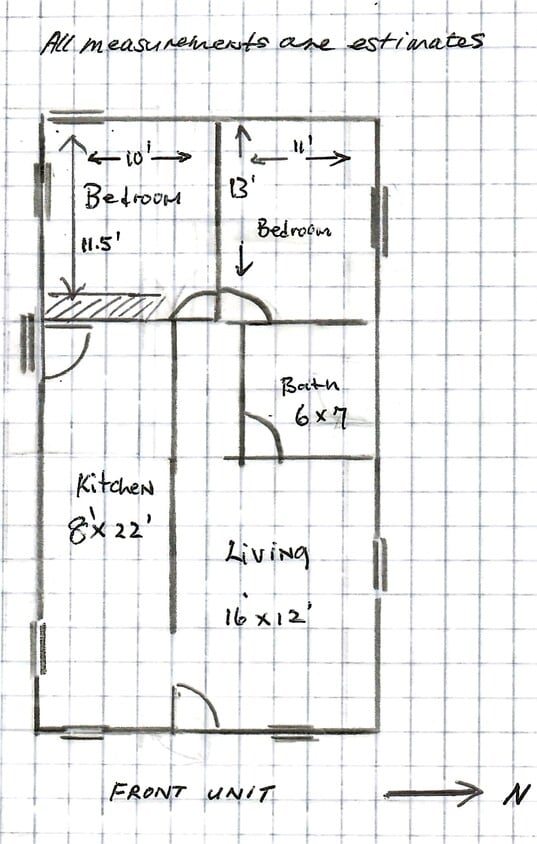 All measurements are estimates
10'
11'
Bedroom
13'
Bedroom
11.5'
Bath
6 x 7
Kitchen
8' x 22'
Living
16 x 12'
FRONT UNIT
N